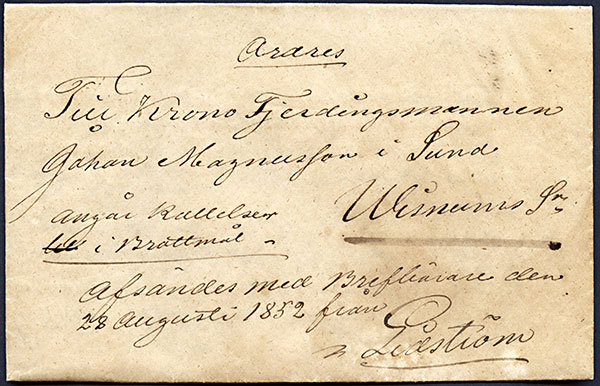 Ordres
Till Krono Fjerdingsmannen
Johan Magnusson i Sund
angår Kallelser
i Brottmål
Wisnums Sn
Afsändes med Brefbärare den
28 Augusti 1852 från
Lidström